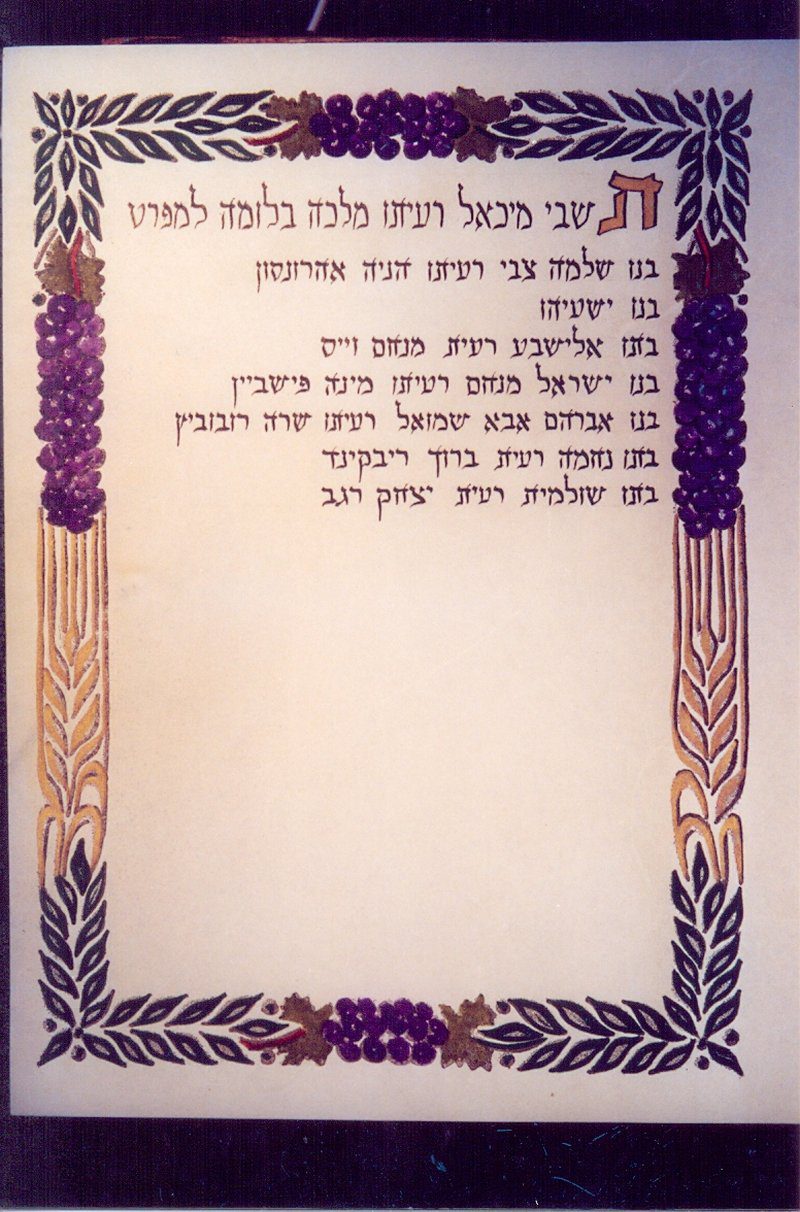 תשבי מיכאל רעיתו מלכה בלומה למפרט
בנו שלמה צבי רעיתו הניה אהרונסון
בנו ישעיהו
בתו אלישבע רעית מנחם וייס
בנו ישראל מנחם רעיתו מינה פישביין
בנו אברהם אבא שמואל רעיתו שרה רובוביץ
בתו נחמה רעית ברוך ריבקינד
בתו שולמית רעית יצחק רגב